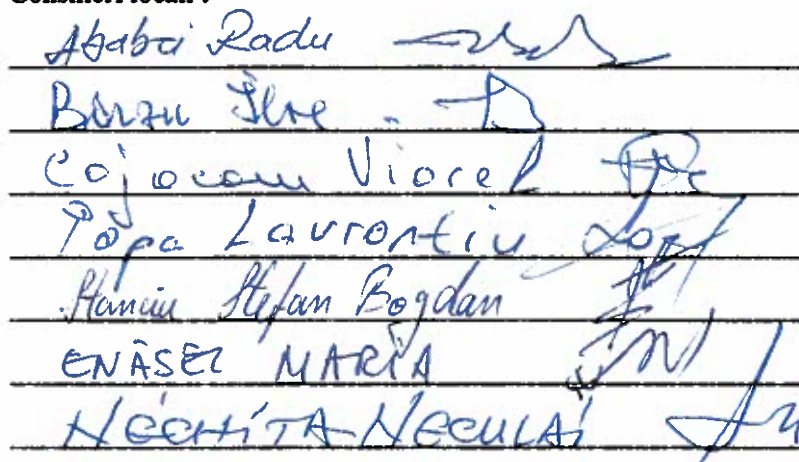 Consilieri locali :
Ababei Radu
Bârzu Ilie -
Cojocaru Viorel
Popa Laurentiu
Stanciu Stefan Bogdan
ENĂSEL MARIA
NECHITA NECULAI